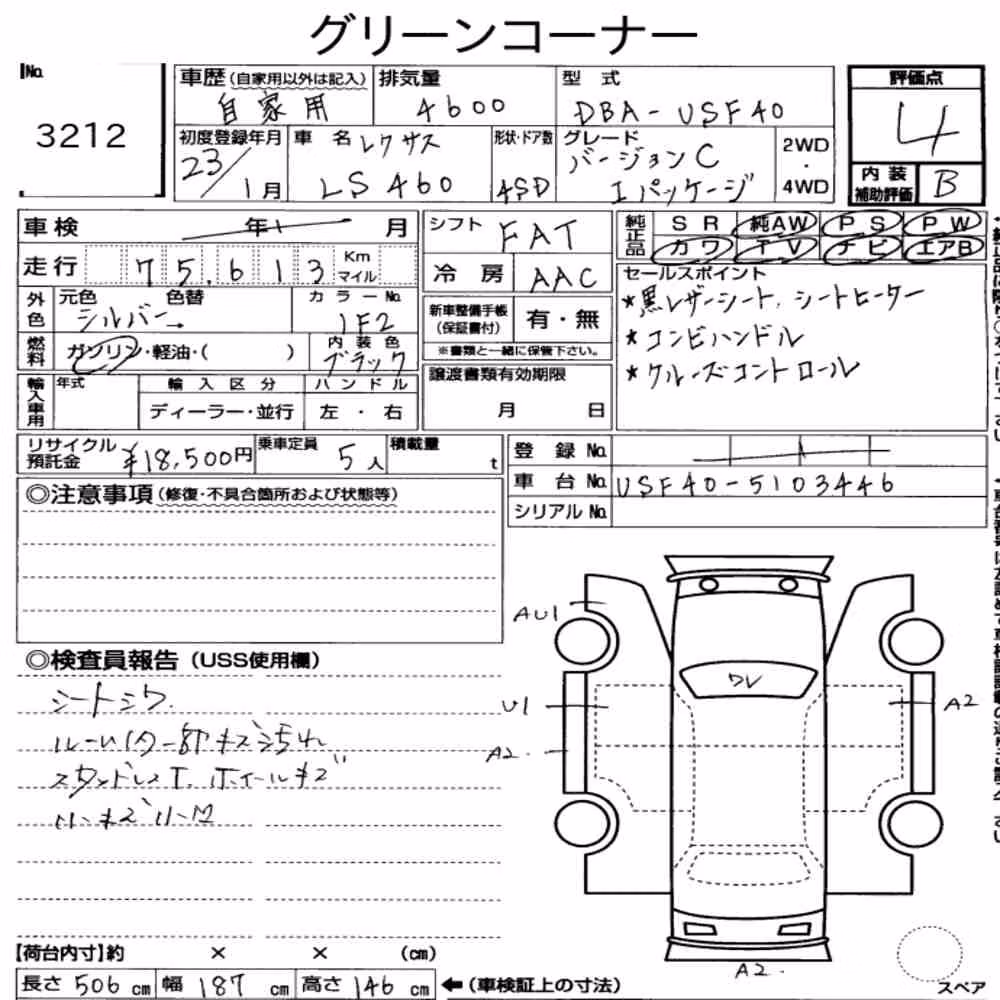 グリーンコーナー
No.
3212
車歴（自家用以外は記入）
自家用
排気量
4600
型式
DBA-USF40
評価点
4
初度登録年月
23/1月
車名 レクサス
LS460
形状・ドア数
4SD
グレード
バージョンC
Iパッケージ
2WD
・
4WD
内装
補助評価
B
車検 年 月
走行 75,613 Km
マイル
外色
元色 色替
シルバー
カラーNo.
1F2
燃料
ガソリン・軽油・( )
内装色
ブラック
輸入車用
年式
輸入区分
ディーラー・並行
ハンドル
左・右
シフト FAT
冷房 AAC
新車整備手帳
（保証書付）
有・無
※書類と一緒に保管下さい。
譲渡書類有効期限
月 日
純正品
SR 純AW PS PW
カワ TV ナビ エアB
セールスポイント
*黒レザーシート、シートヒーター
*コンビハンドル
*クルーズコントロール
リサイクル
預託金
¥18,500円
乗車定員
5人
積載量
t
登録No.
車台No. USF40-5103446
シリアルNo.
◎注意事項（修復・不具合箇所および状態等）
◎検査員報告（USS使用欄）
シートシワ
キズ汚れ
スタッドレスT. ホイールキズ
小キズ小凹
AU1
U1
A2.
ワレ
A2
A2.
【荷台内寸】約 × × (cm)
長さ 506 cm 幅 187 cm 高さ 146 cm
←（車検証上の寸法）
スペア